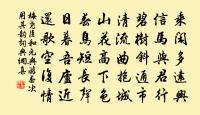 乘閑多逸興
信馬與君行
碧樹斜通市
清流曲抱城
山花高下色
春鳥短長聲
日暮吾廬近
還歌空復情
梅堯臣和元輿游春次
用其韻詞典網集